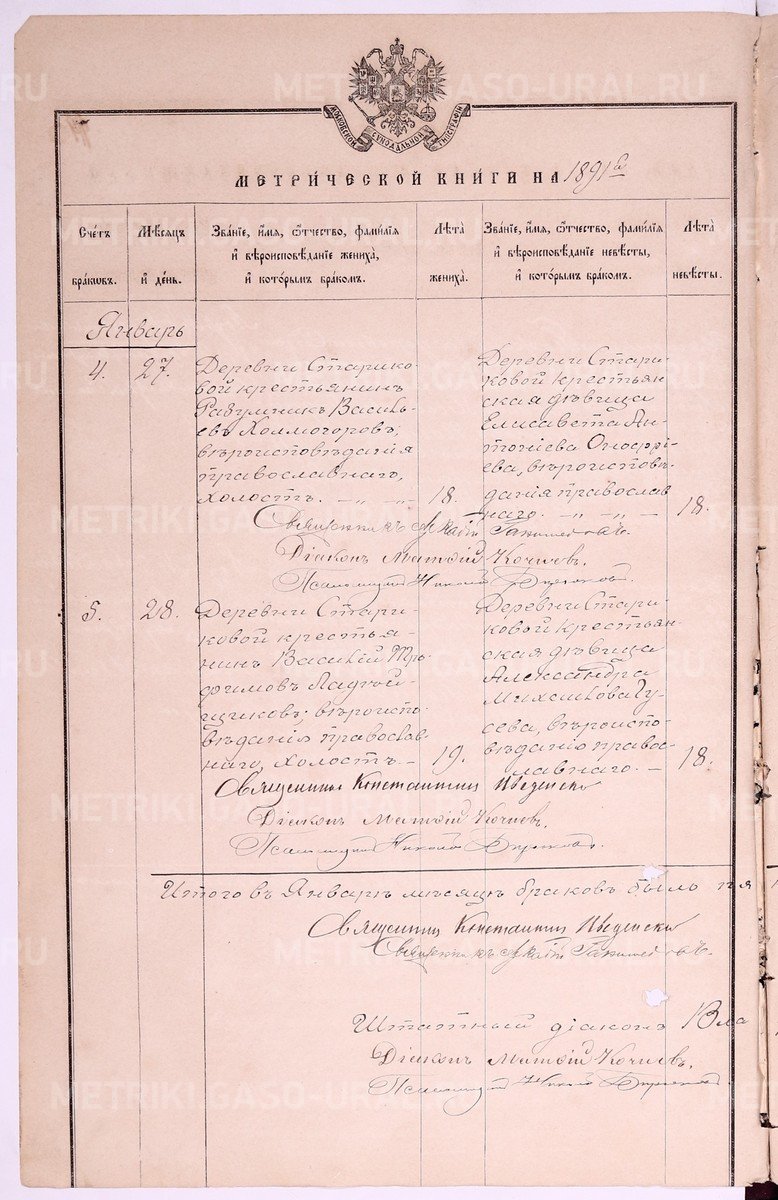 МОСКОВСКОЙ СѴНОДАЛЬНОЙ ТИПОГРАФІИ
МЕТРИ́ЧЕСКОЙ КНИ́ГИ НА 1891 й
Сче́тъ бра́ковъ.
Мѣ́сяцъ и҆ де́нь.
Зва́ніе, и҆́мя, ѻ҆́тчество, фами́лія
и҆ вѣроисповѣ́даніе жениха̀,
и҆ кото́рымъ бра́комъ.
Лѣта̀ жениха̀.
Зва́ніе, и҆́мя, ѻ҆́тчество, фами́лія
и҆ вѣроисповѣ́даніе невѣ́сты,
и҆ кото́рымъ бра́комъ.
Лѣта̀ невѣ́сты.
Январь
4.
27.
Деревни Старико-
вой крестьянинъ
Разумникъ Василь-
евъ Холмогоровъ,
вѣроисповѣданія
православнаго,
холостъ. — „ — „ —
18.
Деревни Стари-
ковой крестьян-
ская дѣвица
Елисавета Ан-
тоніева Оноѳрі-
ева, вѣроисповѣ-
данія православ
наго. — „ — „ —
18.
Священникъ
Діаконъ Матѳій Кочневъ.
Псаломщикъ Николай Бирюковъ.
5.
28.
Деревни Стари-
ковой крестья-
нинъ Василій Тро-
фимовъ Ладей-
щиковъ, вѣроиспо-
вѣданія православ-
наго, холостъ. —
19.
Деревни Стари-
ковой крестьян-
ская дѣвица
Александра
Михаилова Гу-
сева, вѣроиспо-
вѣданія право-
славнаго. —
18.
Священникъ Константинъ Введенскій
Діаконъ Матѳій Кочневъ.
Псаломщикъ Николай Бирюковъ.
Итого въ Январѣ мѣсяцѣ браковъ было пя
Священникъ Константинъ Введенскій
Священникъ
Штатный діаконъ Вла
Діаконъ Матѳій Кочневъ.
Псаломщикъ Николай Бирюковъ
METRIKI.GASO-URAL.RU